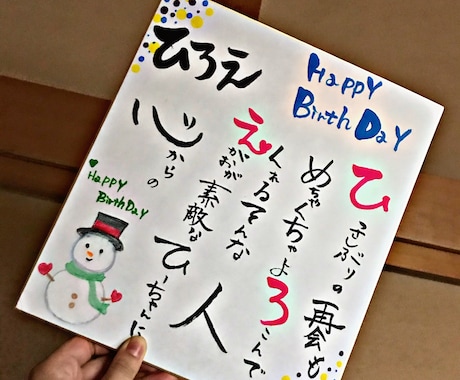 ひろえ
HAPPY
BirthDAY
ひさしぶりの再会も
めちゃくちゃよろこんで
くれるそんな
えがおが素敵な
人
ひーちゃんに
心からの
HAPPY
BirthDAY